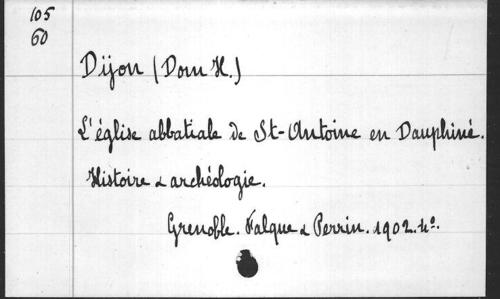 105
60
Dijon (Dom H.)
L'église abbatiale de St-Antoine en Dauphiné.
Histoire & archéologie.
Grenoble. Falque & Perrin. 1902. 4°.